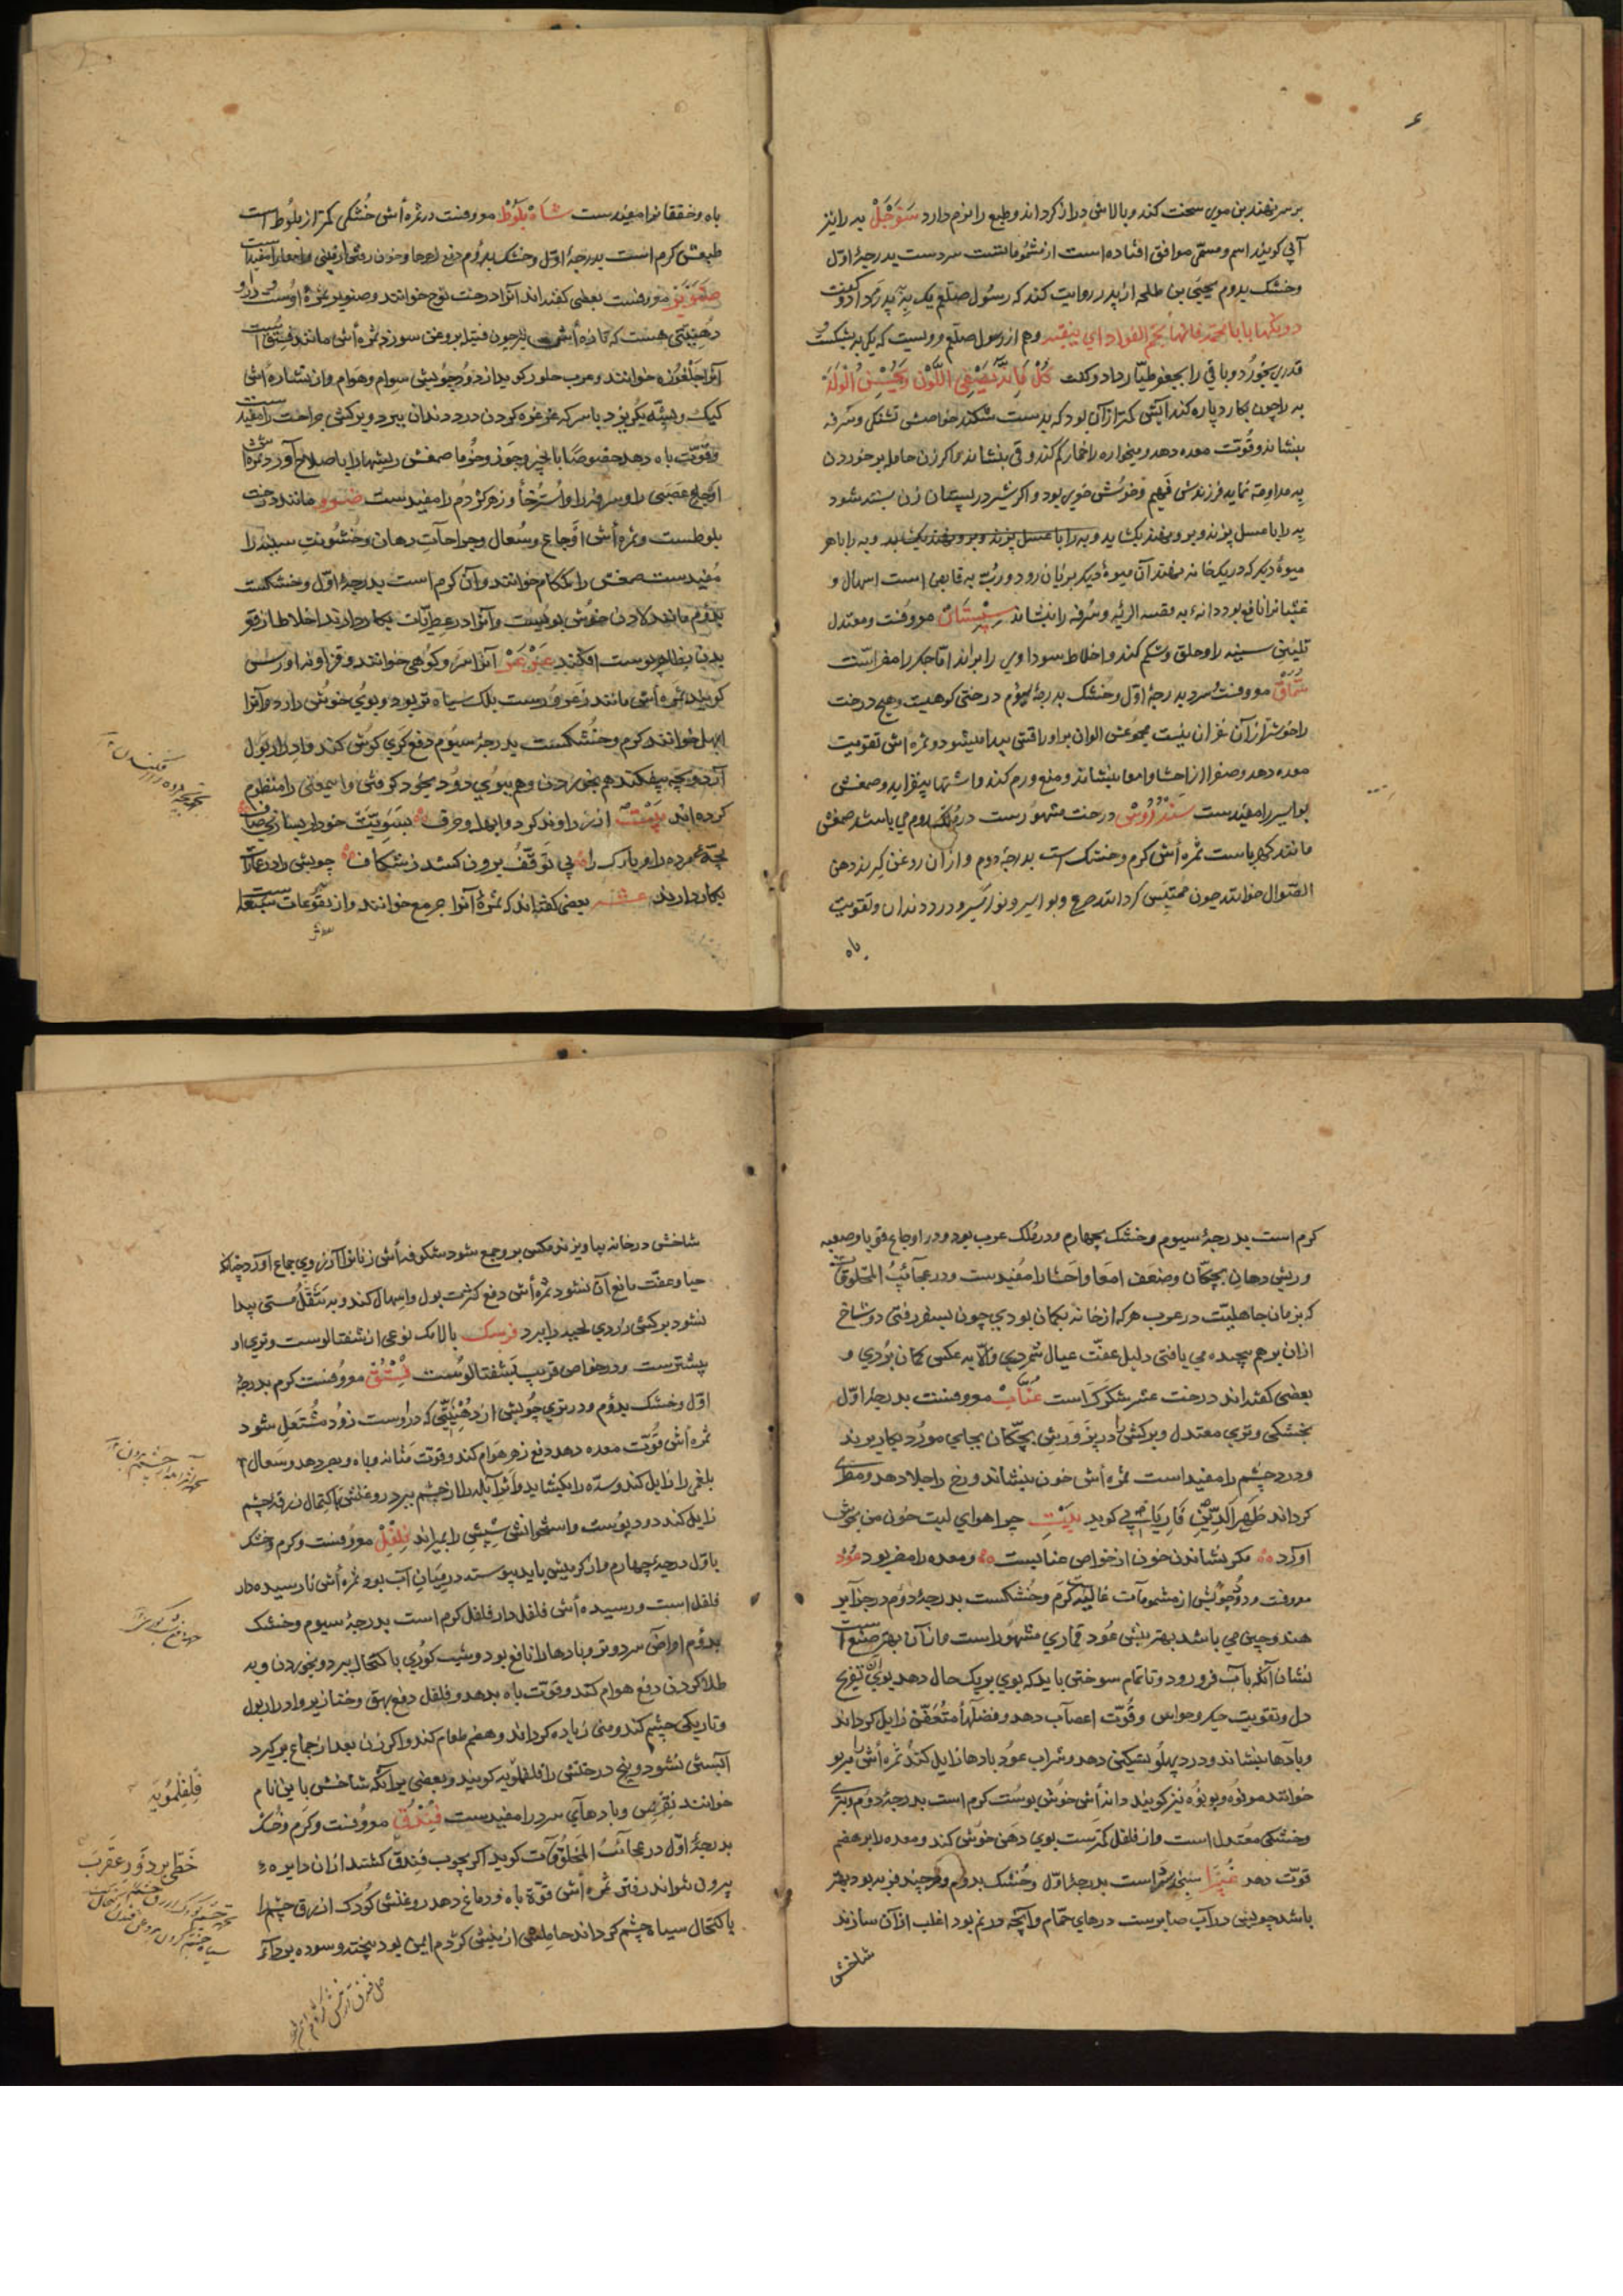 بر سر نهند بن موی سخت کند و بالاش دراز گرداند و طبع را نرم دارد سَفَرجَلْ به را نیز
آبی گویند اسم و مسمّی موافق افتاده است از مشمومانست سردست بدرجهٔ اوّل
وخشک بدوم یحیی بن طلحه از پدر روایت کند که رسول صلعم یک به بپدرم داد و گفت
دونکها یا بامحمد فانها تجم الفواد ای ینقیه وهم از رسول صلعم مرویست که یک به بشکست و
قدری بخورد و باقی را بجعفر طیّار داد و گفت کُلْ فانه یُصَفِّی اللَّوْن و یُحْسِنُ الوَلَدَ
به را چون بکارد پاره کند آبش کمتر از آن بود که بدست شکنند خواصش تشنگی و سرفه
بنشاند و قُوّت معده دهد و میخواره را خمار کم کند و قی بنشاند و اگر زن حامله بر خوردن
به مداومه نماید فرزندش فهیم و خوش خوی بود و اگر شیر در پستان زن بسته شود
به را با عسل پزند و برو نهند بکشاید و به را با عسل پزند و برو نهند بکشاید و به را با هر
میوهٔ دیگر که در یک خانه نهند آن میوهٔ دیگر بزیان رود و ربّ به قابض است اسهال و
غثیانرا نافع بود دانهٔ به قصبه الریه و سرفه را بنشاند سِپِسْتان معروفست و معتدل
تلیین سینه را و حلق و شکم کند و اخلاط سوداوی را براند امّا جگر را مضرّ است
سُمّاقْ معروفست سرد بدرجهٔ اوّل و خشک بدرجهٔ سیوم درختی کوهیست و هیچ درخت
را خوشتر از آن خزان نیست مجموعش الوان بر اوراقش پیدا میشود و ثمره اش تقویت
معده دهد و صفرا از احشا و امعا بنشاند و منع ورم کند و اشتها بیفزاید و صمغش
بواسیر را مفیدست سَنْدَرُوسْ درخت مشهورست در ملک روم می باشد صمغش
مانند کهرباست ثمره أش گرم و خشک است بدرجهٔ دوم و از آن روغن گیرند دهن
الصّوال خوانند چون مُحْتَبِس گردانند صرع و بواسیر و نواسیر و درد دندان و تقویت
باه
باه و خفقانرا مفیدست شاه بَلُوط معروفست در ثمره أش خُشکی کمتر از بلوط است
طبعش گرم است بدرجهٔ اوّل و خشک بدوم دفع اوجا و خون رفتن از بینی و امعا را مفید است
صَنَوبَر معروفست بعضی گفته اند آنرا درخت نوج خوانند و صنوبر ثمرهٔ اوست و در او
دُهنیّتی هست که تازه أش نیز چون فتیله بروغن سوزد ثمره أش مانند فستق است
آنرا جَلْغوزه خوانند و عرب جلوز گوید از دود چوبش سوام و هوام و از نشاره أش
کیک و پشّه بگریزد با سرکه غرغره کردن درد دندان ببرد و برگش جراحت را مفید است
و قُوّت باه دهد خصوصًا با انجیر و جوز و خرما صمغش ریشها را باصلاح آورد ثمره أش
اوجاع عصبی را و سرفه را و استرخا و زهر کژدم را مفیدست ضرو مانند درخت
بلوطست و ثمره أش اوجاع و سعال و جراحات دهان و خشونت سینه را
مفیدست صمغش را کمکام خوانند و آن گرم است بدرجهٔ اوّل و خشکست
بدوم مانند لادن خوش بویست و آنرا در عطریات بکار دارند اخلاط از قعر
بدن بظاهر پوست افکند عَرْعَرْ آنرا سرو کوهی خوانند و قزاونه اورس
گویند ثمره أش مانند زعرورست بلک سیاه تر بود و بوی خوش دارد و آنرا
ابهل خوانند گرم و خشکست بدرجهٔ سیوم دفع کری گوش کند و ادرار بول
آرد و بچه بیفکند هم بخوردن و هم ببوی دود بخود گرفتن و این معنی را منظوم
کرده اند بَیْت از زراوند کرد و ابهل و حرف بسویّت خود ار بستانی صاف
بچّهٔ مرده را بر تارک را بی توقّف برون کشد ز شکاف چوبش را در عمارات
بکار دارند عشر بعضی گفته اند که ثمرهٔ آنرا جرمع خوانند و از یتوعات سبعه است
گرم است بدرجهٔ سیوم و خشک بچهارم و در ملک عرب بود و در اوجاع قوبا و صعبه
و ریش دهان بچگان و ضعف امعا و احشا را مفیدست و در عجائب المخلوقات
که بزمان جاهلیّت در عرب هر که از خانه بگمان بودی چون بسفر رفتی دو شاخ
از آن بر هم پیچیده می یافتی دلیل عفّت عیال شمردی و الّا بر عکس گمان بردی و
بعضی گفته اند درخت عشر شکرک است عُنّاب معروفست بدرجهٔ اوّل
بخشکی و تری معتدل و برگش را در پزورش بچّگان بجای مورد بکار برند
و درد چشم را مفید است ثمره أش خون بنشاند و رخ را جلا دهد و مطری
گرداند ظهیر الدین فاریابی گوید بَیْت چرا هوای لبت خون من بجوش
آورد مگر نشاندن خون از خواص عنابست و معده را مضر بود عُودْ
معروفست و دود چوبش از مشمومات غالبه گرم و خشکست بدرجهٔ دوم در جزایر
هند و چین می باشد بهترینش عود قماری مشهور است و از آن بهتر صنع است
نشان آنکه بآب فرو رود و تا تمام سوختن باید که بوی بر یک حال دهد بوی آن تفریح
دل و تقویت جگر و حواس و قُوّت اعصاب دهد و فضلهاء متعفّن زایل گرداند
و بادها بنشاند و درد پهلو تسکین دهد و شراب عود بادها زایل کند ثمره أش را مربو
خوانند مربوه و بوبوه نیز گویند دانه أش خوش بوست گرم است بدرجهٔ دوم و بتری
و خشکی معتدل است و از فلفل کمترست بوی دهن خوش کند و معده را بر هضم
قوّت دهد غُبَیْرا سنجد است بدرجهٔ اوّل و خشک بدوم و هرچند فربه بود بهتر
باشد چوبش در آب صابرست درهای حمّام و آنچه در نم بود اغلب از آن سازند
شاخش
شاخش در خانه بیاویزند مگس برو جمع شود شگوفه أش زنانرا آرزوی جماع آورد چنانک
حیا و عفّت مانع آن نشود ثمره أش دفع کثرت بول و اسهال کند و به تنقّل مستی پیدا
نشود برگش زردی لحیه را ببرد فرسک بالانک نوعی از شفتالوست و تری او
بیشترست و در خواص قریب بشفتالوست فُسْتُق معروفست گرم بدرجهٔ
اوّل و خشک بدوم و در تری چوبش از دُهْنیّتی که در اوست زود مشتعل شود
ثمره أش قُوّت معده دهد دفع زهر هوام کند و قوّت مثانه و باه و بصر دهد و سعال
بلغمی را زایل کند و سدّه را بکشاید و اثر آبله را از چشم ببرد روغنش باکتحال زرقهٔ چشم
زایل کند دود پوست و استخوانش سپش را بمیراند فُلْفُلْ معروفست و گرم و خشک
باوّل درجهٔ چهارم و از گرمیش باید پیوسته در میان آب بود ثمره أش نارسیده دار
فلفل است و رسیده أش فلفل دار فلفل گرم است بدرجهٔ سیوم و خشک
بدوم امراض سرد و تر و بادها را نافع بود و شب کوری باکتحال ببرد و بخوردن و به
طلا کردن دفع هوام کند و قوّت باه بدهد و فلفل دفع بهق و خنازیر و ادرار بول
و تاریکی چشم کند و منی زیاده گرداند و هضم طعام کند و اگر زن بعد از جماع برگیرد
آبستن نشود و بیخ درختش را فلفلمویه گویند و بعضی برآنکه شاخش باین نام
خوانند نقرس و بادهای سرد را مفیدست فُنْدُق معروفست و گرم و خشک
بدرجهٔ اوّل در عجائب المخلوقات گوید اگر بچوب فندق کشند از آن دایره
بیرون نتواند رفتن ثمره أش قوّة باه و دماغ دهد روغنش کودک ازرق چشم را
باکتحال سیاه چشم گرداند حاملش از نیش کژدم ایمن بود پخته و سوده
فِلْفِلمُویَه
خطّی بر دَور عقرب